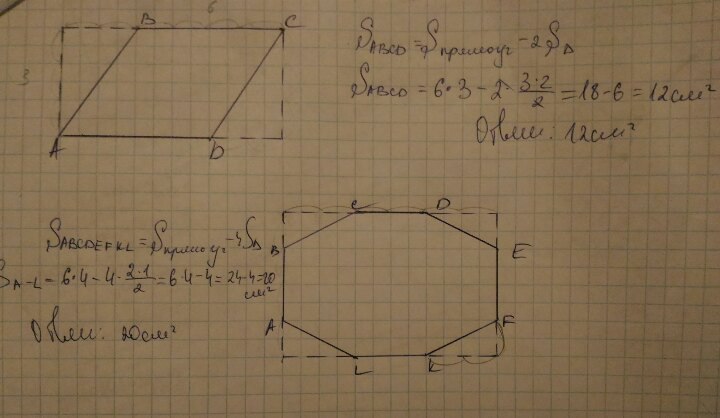 6
B
C
3
A
D
S ABCD = S прямоуг - 2 S Δ
S ABCD = 6·3 - 2· 3·2/2 = 18-6 = 12 см²
Ответ: 12 см²
C
D
B
E
A
F
L
K
S ABCDEFKL = S прямоуг - 4 S Δ
S A-L = 6·4 - 4· 2·1/2 = 6·4-4 = 24-4=20
см²
Ответ: 20 см²